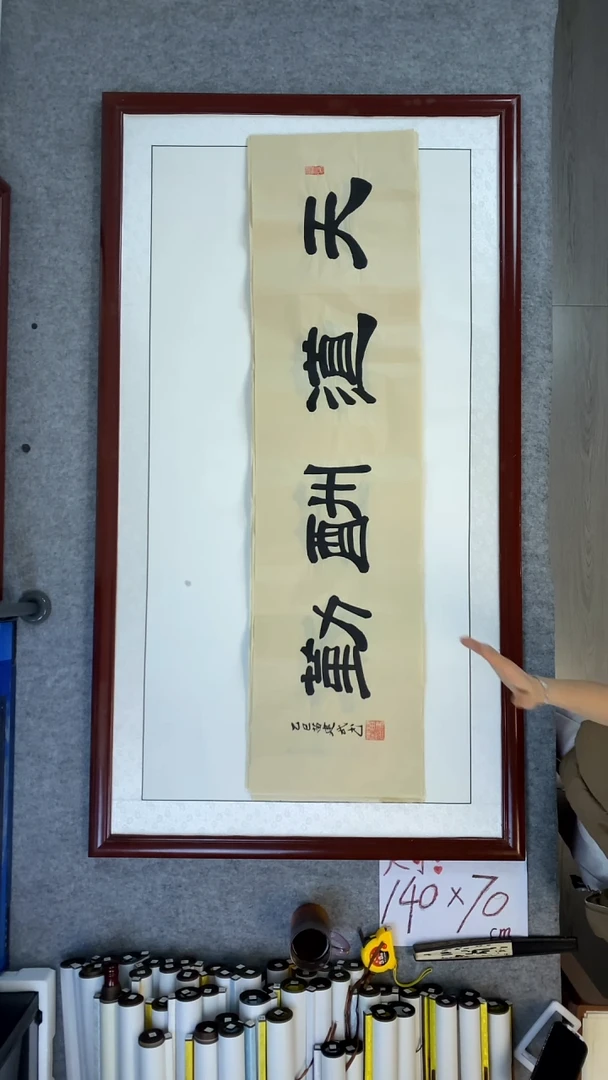 天道酬勤
乙巳
140×70
cm